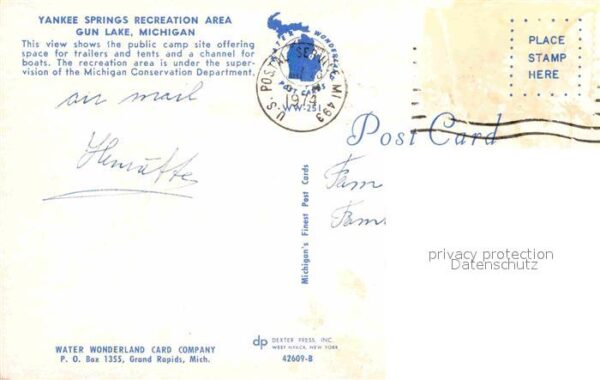 YANKEE SPRINGS RECREATION AREA
GUN LAKE, MICHIGAN
This view shows the public camp site offering
space for trailers and tents and a channel for
boats. The recreation area is under the super-
vision of the Michigan Conservation Department.
air mail
WATER WONDERLAND
POST CARDS
WW-251
U.S. POSTAL SERVICE MI 493
PLACE
STAMP
HERE
Post Card
Michigan's Finest Post Cards
Fam
Fam
privacy protection
Datenschutz
WATER WONDERLAND CARD COMPANY
P. O. Box 1355, Grand Rapids, Mich.
dp DEXTER PRESS, INC.
WEST NYACK, NEW YORK
42609-B